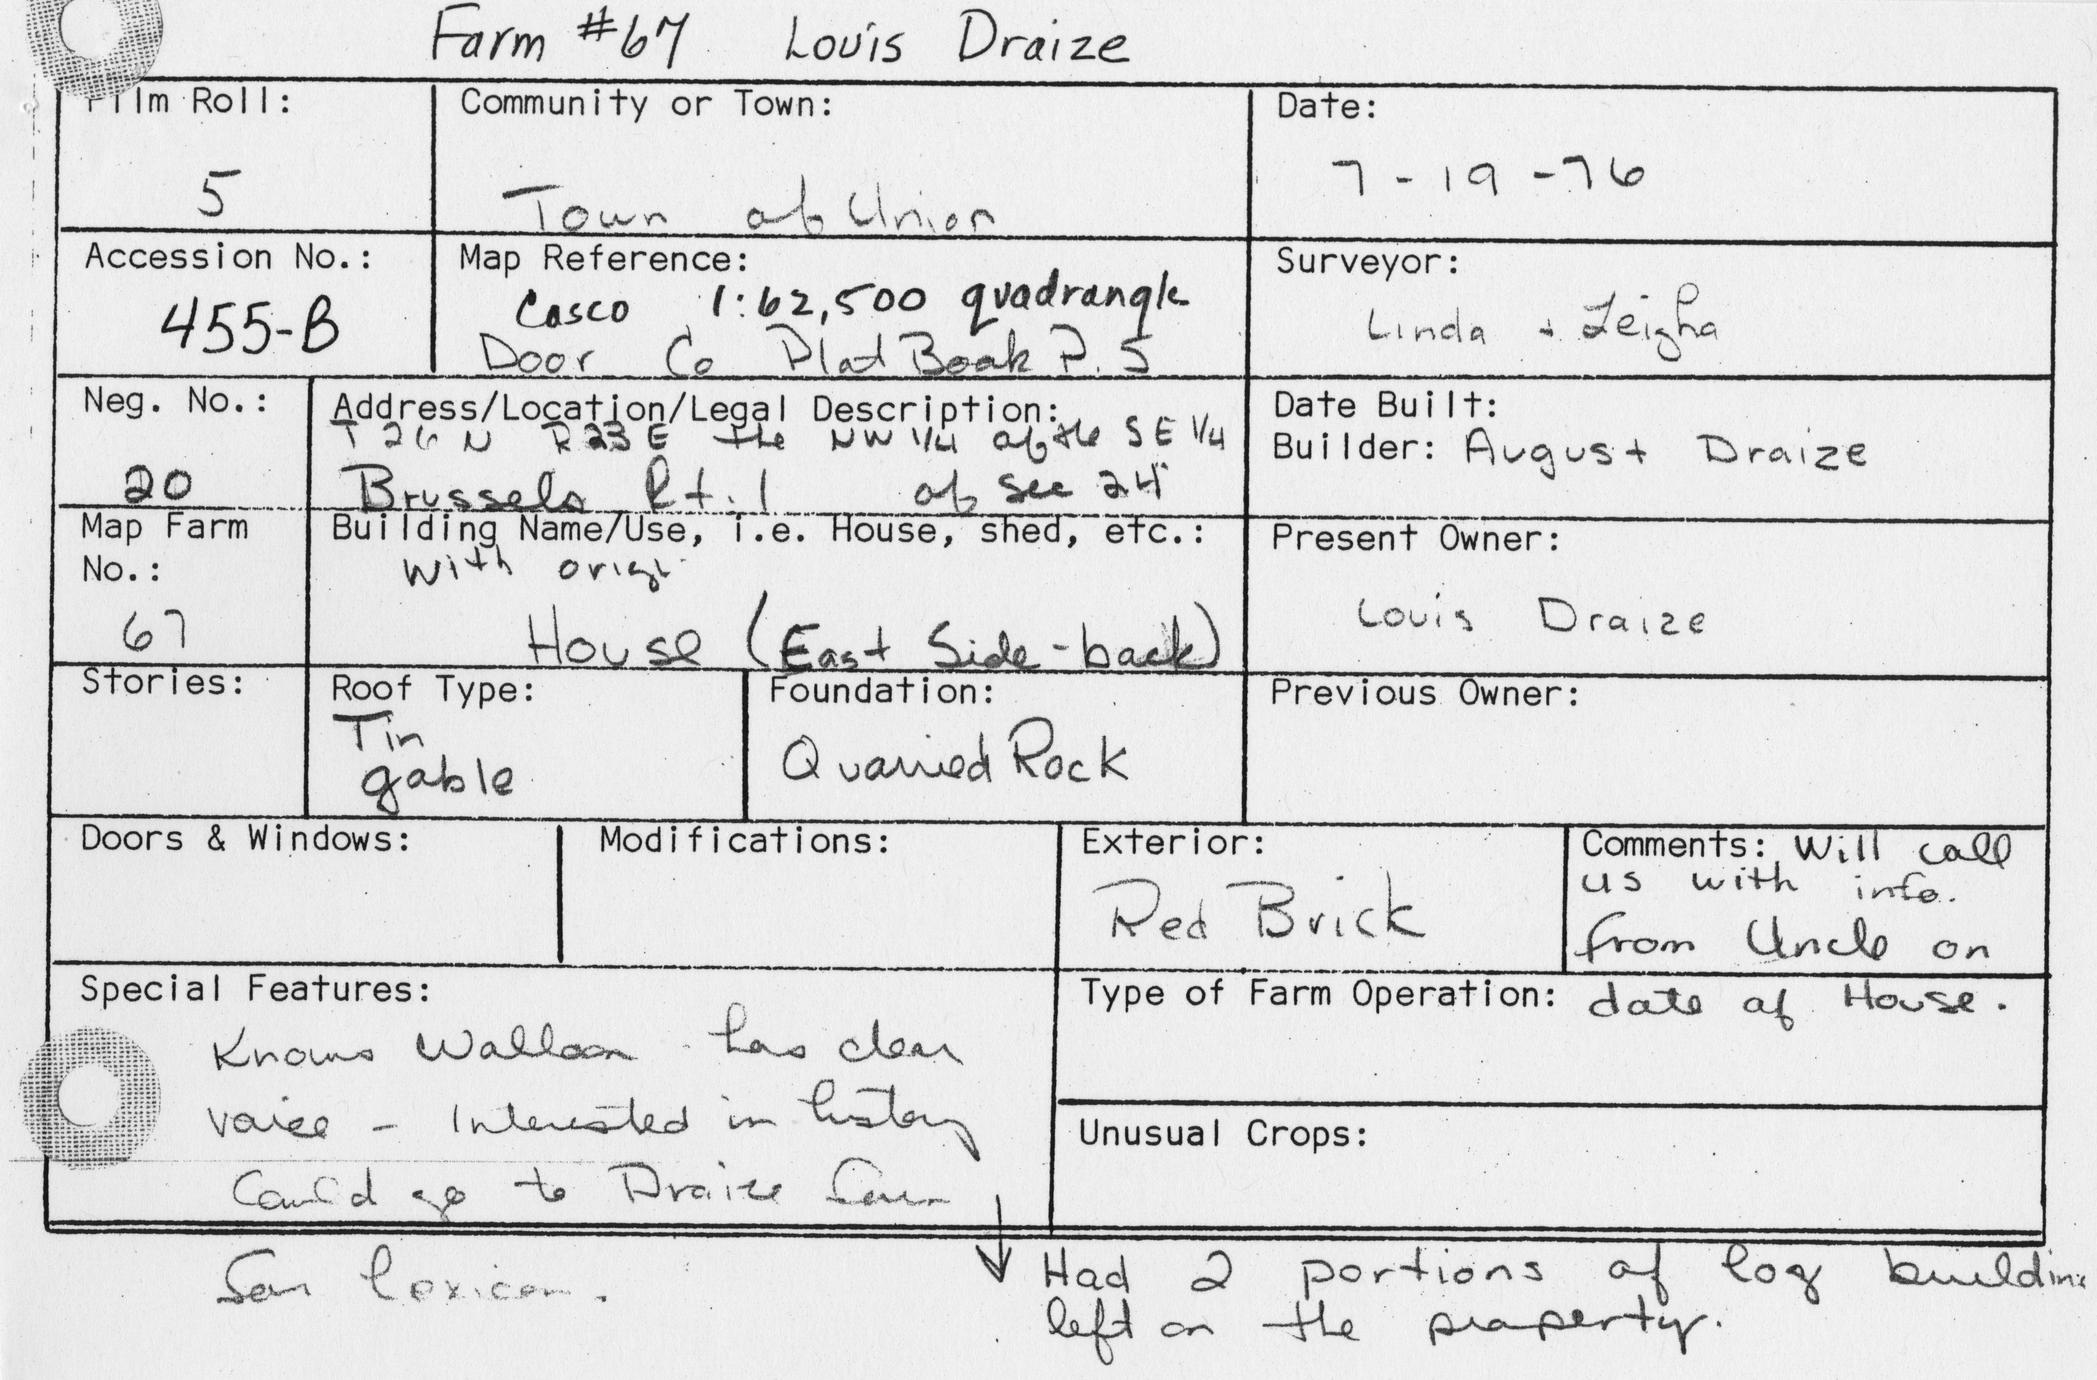 Farm #67 Louis Draize
Film Roll:
5
Community or Town:
Town of Union
Date:
7-19-76
Accession No.:
455-B
Map Reference:
Casco 1:62,500 quadrangle
Door Co Plat Book P. 5
Surveyor:
Linda + Leigha
Neg. No.:
20
Address/Location/Legal Description:
T 26 N R23E the NW 1/4 of the SE 1/4
Brussels Rt. 1 of sec 24
Date Built:
Builder: August Draize
Map Farm
No.:
67
Building Name/Use, i.e. House, shed, etc.:
with
House (East Side-back)
Present Owner:
Louis Draize
Stories:
Roof Type:
Tin
gable
Foundation:
Quarried Rock
Previous Owner:
Doors & Windows:
Modifications:
Exterior:
Red Brick
Comments: Will call
us with info.
from Uncle on
date of House.
Special Features:
Knows Walloon - has clear
voice - Interested in history
Could go to Draize
for lexicon.
Type of Farm Operation:
Unusual Crops:
Had 2 portions of log building
left on the property.